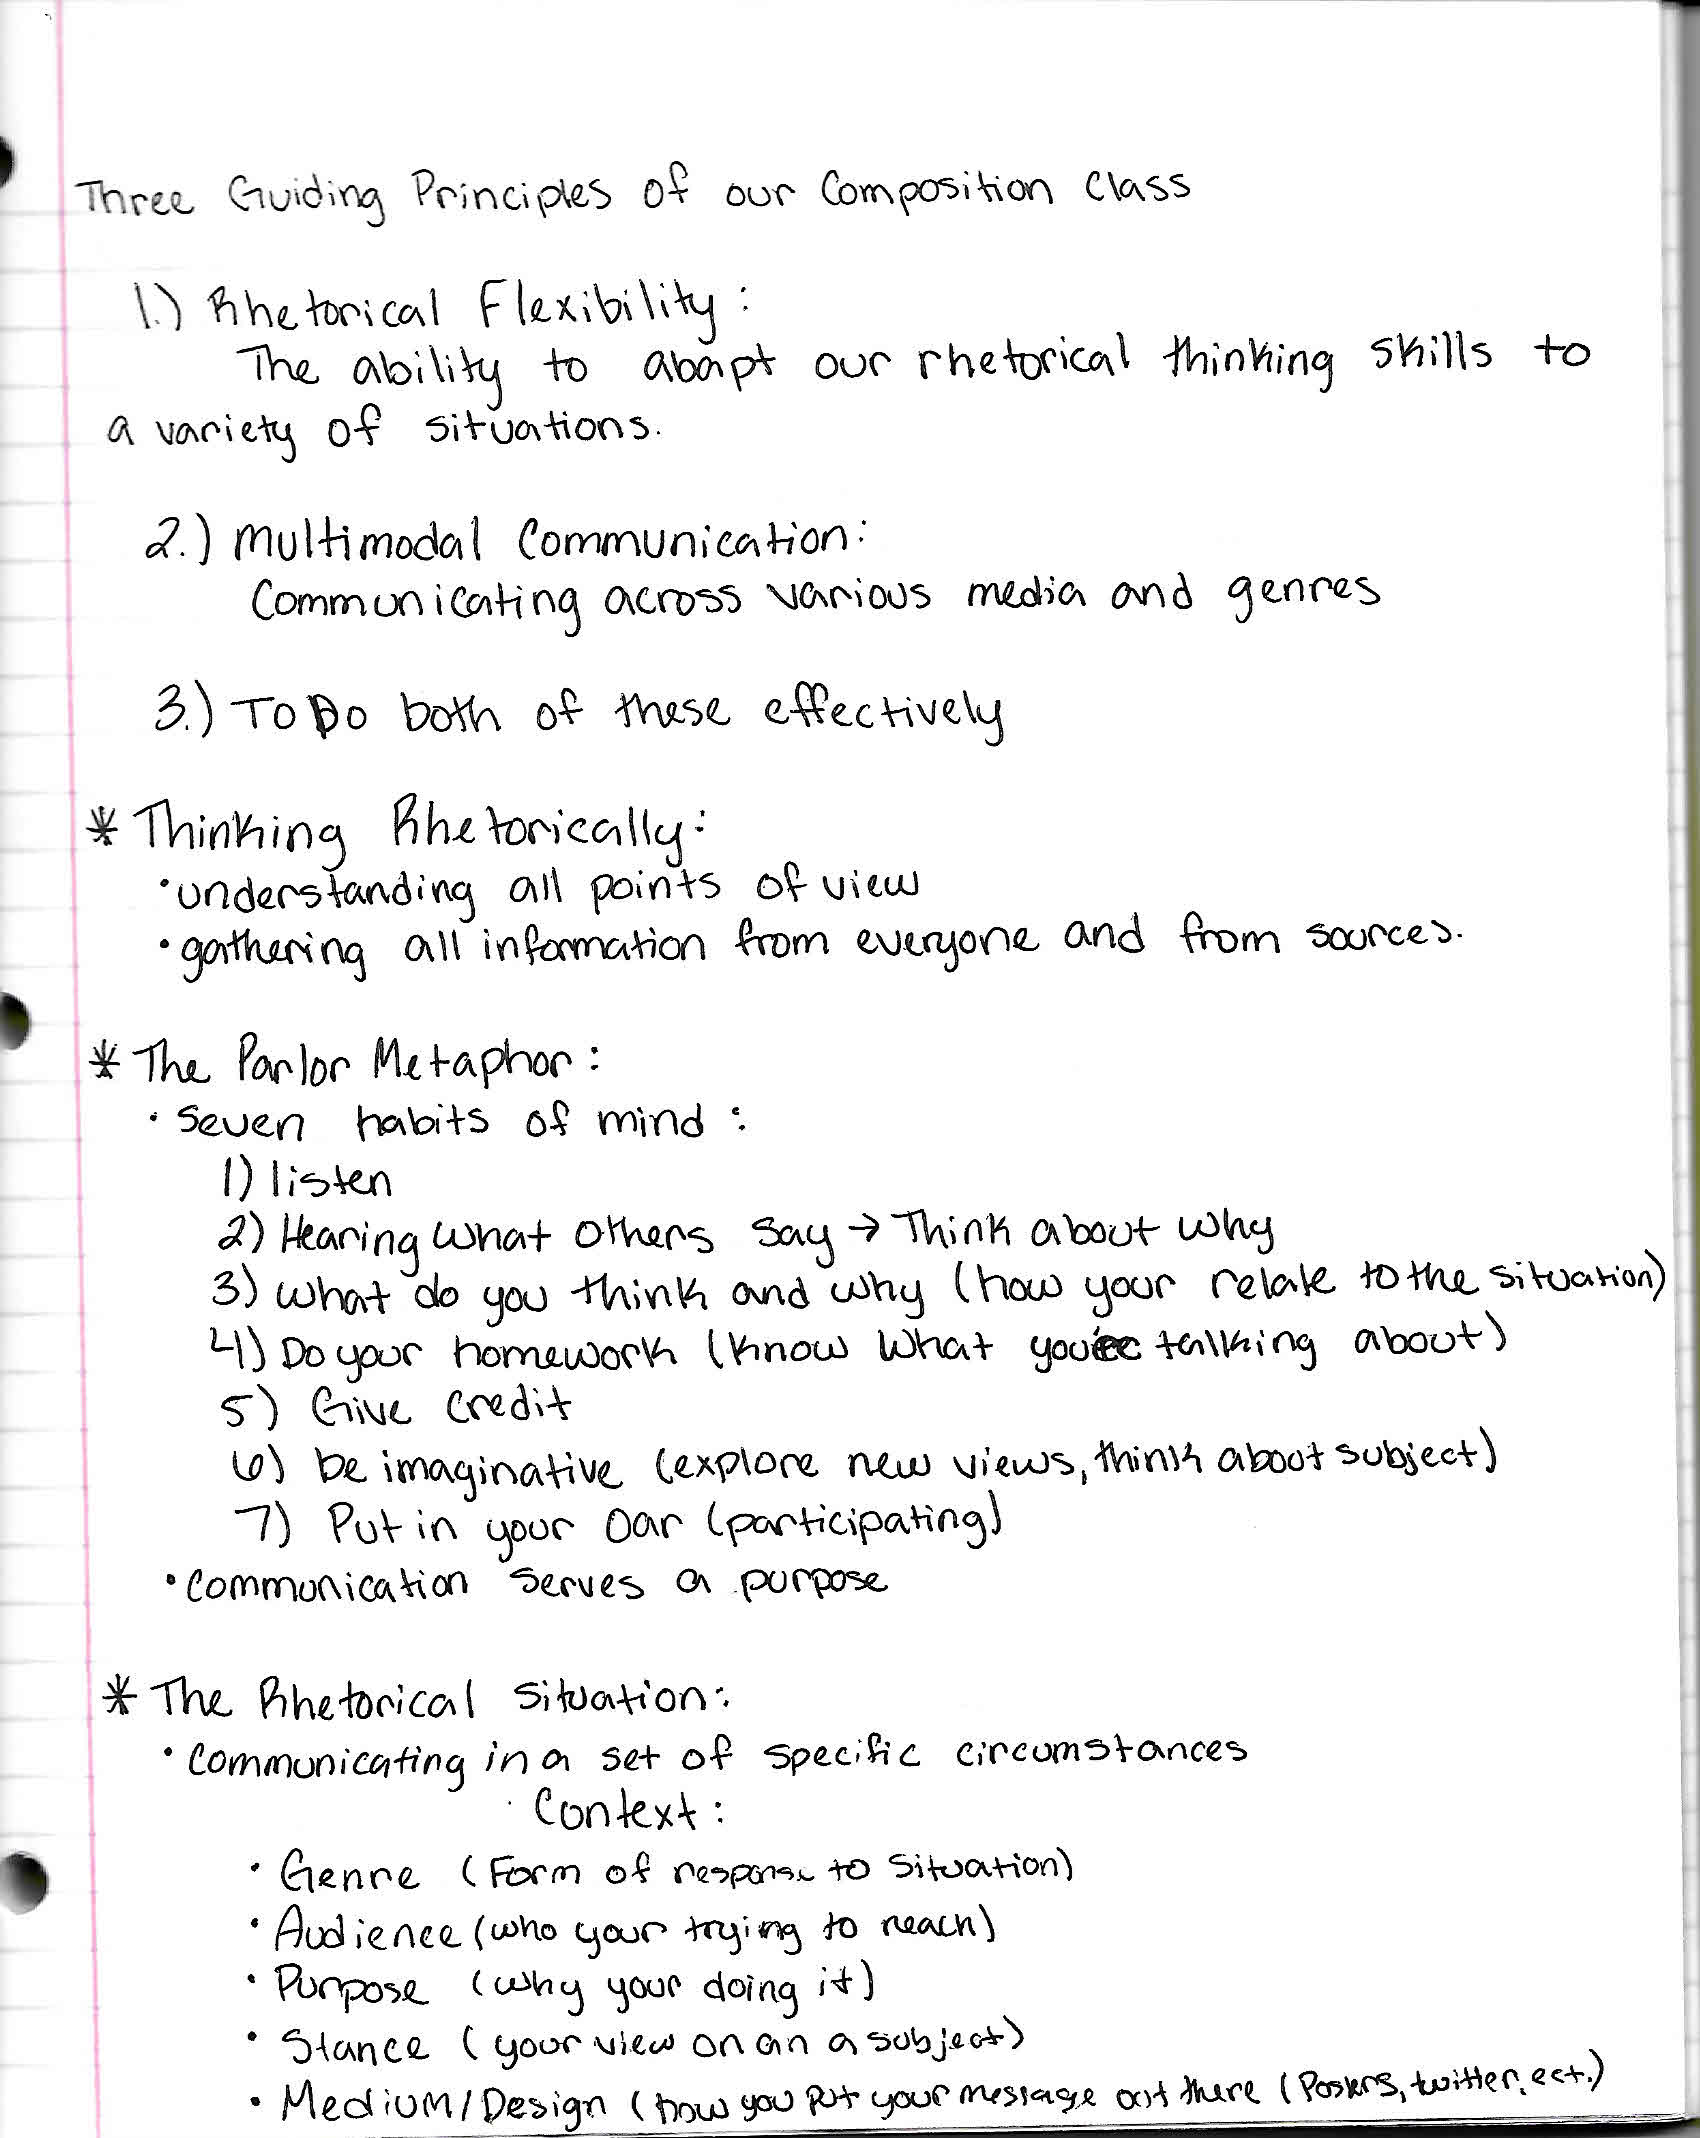 Three Guiding Principles of our Composition Class
1.) Rhetorical Flexibility:
The ability to abapt our rhetorical thinking skills to
a variety of situations.
2.) Multimodal Communication:
Communicating across various media and genres
3.) To Do both of these effectively
* Thinking Rhetorically:
• understanding all points of view
• gathering all information from everyone and from sources.
* The Parlor Metaphor:
• Seven habits of mind:
1) listen
2) Hearing what others say → Think about why
3) What do you think and why (how your relate to the situation)
4) Do your homework (know what you're talking about)
5) Give credit
6) be imaginative (explore new views, think about subject)
7) Put in your oar (participating)
• communication serves a purpose
* The Rhetorical Situation:
• Communicating in a set of specific circumstances
Context:
• Genre (Form of response to situation)
• Audience (who your trying to reach)
• Purpose (why your doing it)
• Stance (your view on an a subject)
• Medium/Design (how you put your message out there (Posters, twitter, ect.)